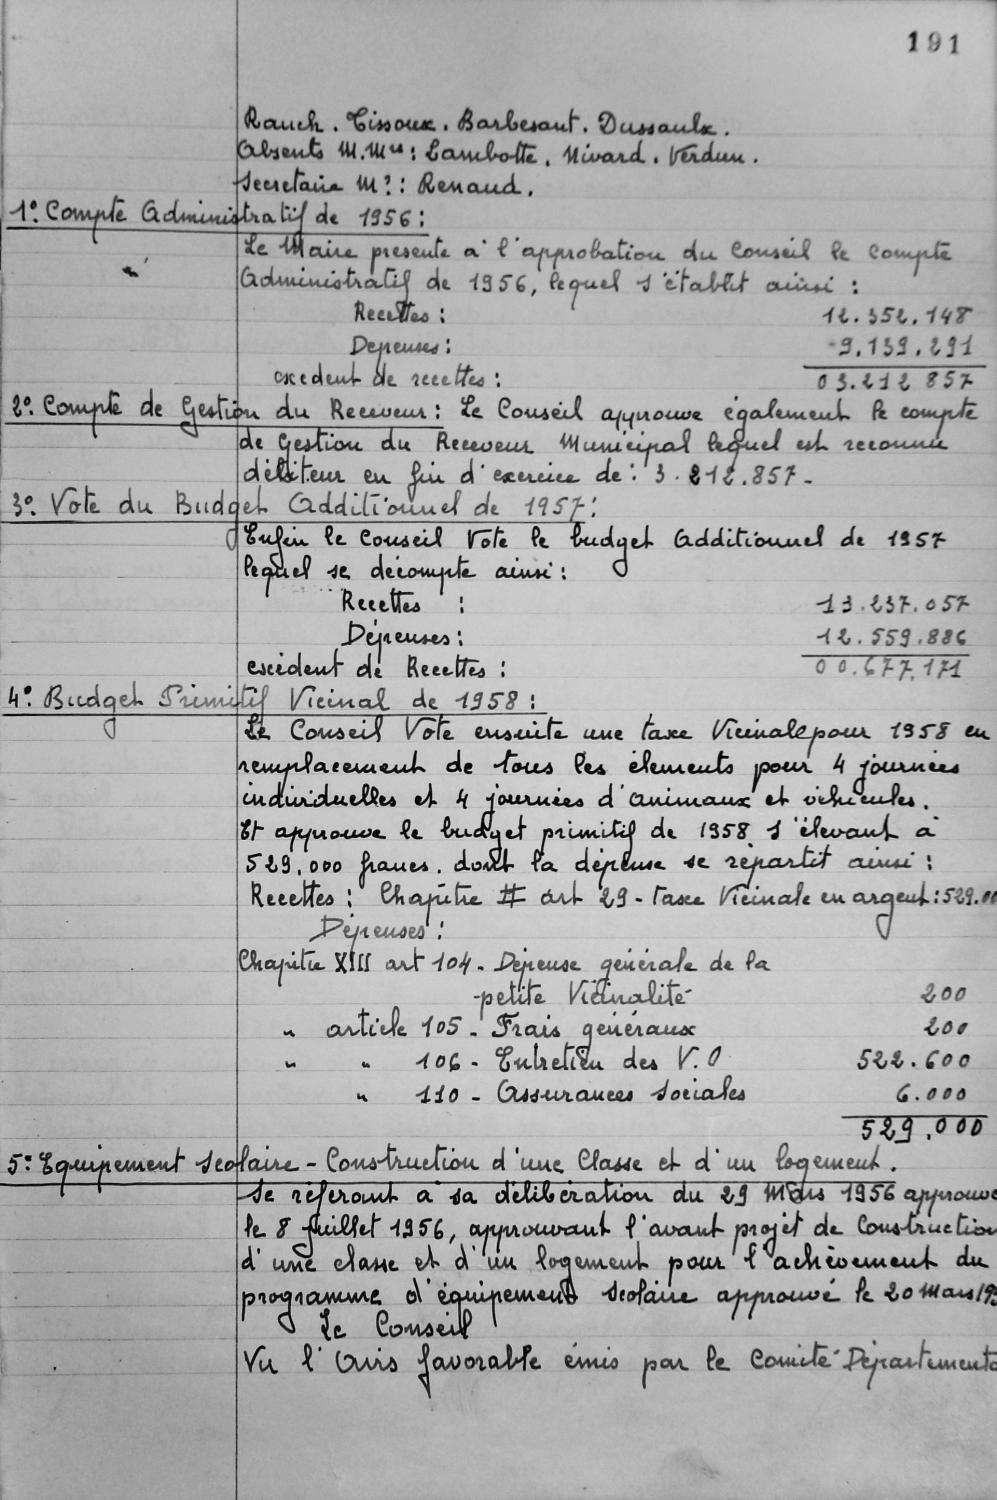 191
Rauch. Tissoux. Barbesant. Dussaulx.
Absents M.Mrs: Lambotte. Nivard. Verdun.
Secretaire Mr: Renaud.
1º. Compte Administratif de 1956:
Le Maire presente à l'approbation du Conseil le Compte
Administratif de 1956, lequel s'établit ainsi:
Recettes: 12.352.148
Depenses: 9.139.291
excedent de recettes: 03.212 857
2º. Compte de Gestion du Receveur: Le Conseil approuve également le compte
de Gestion du Receveur Municipal lequel est reconnu
débiteur en fin d'exercice de: 3.212.857-
3º Vote du Budget Additionnel de 1957:
Enfin le Conseil Vote le budget Additionnel de 1957
lequel se décompte ainsi:
Recettes : 13.237.057
Dépenses: 12.559.886
excédent de Recettes: 00.677.171
4º Budget Primitif Vicinal de 1958:
Le Conseil Vote ensuite une taxe Vicinale pour 1958 en
remplacement de tous les élements pour 4 journées
individuelles et 4 journées d'animaux et véhicules.
Et approuve le budget primitif de 1958 s'élevant à
529.000 francs. dont la dépense se répartit ainsi:
Recettes: Chapitre II art 29 - taxe Vicinale en argent: 529.00
Dépenses:
Chapitre XIII art 104 - Dépense générale de la
petite Vicinalité 200
" article 105 - Frais généraux 200
" " 106 - Entretien des V.O 522.600
" 110 - Assurances Sociales 6.000
529.000
5º Equipement Scolaire - Construction d'une Classe et d'un logement.
Se référant à sa délibération du 29 Mars 1956 approuvé
le 8 Juillet 1956, approuvant l'avant projet de Construction
d'une classe et d'un logement pour l'achèvement du
programme d'équipement Scolaire approuvé le 20 Mars 195
Le Conseil
Vu l'Avis favorable émis par le Comité Départementa